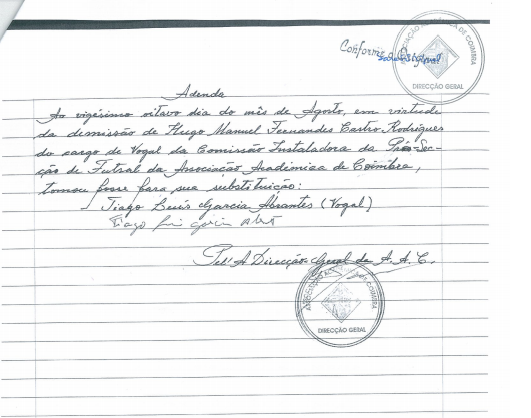 Conforme o Original
ASSOCIAÇÃO ACADÉMICA DE COIMBRA
DIRECÇÃO GERAL
Adenda
Ao vigésimo oitavo dia do mês de Agosto, em virtude
da demissão de Hugo Manuel Fernandes Castro Rodrigues
do cargo de Vogal da Comissão Instaladora da Pró-Sec-
ção de Futsal da Associação Académica de Coimbra,
tomou posse para sua substituição:
- Tiago Luís Garcia Abrantes (Vogal)
Tiago Luis Garcia
Pel'A Direcção-Geral da A.A.C.
ASSOCIAÇÃO ACADÉMICA DE COIMBRA
DIRECÇÃO GERAL